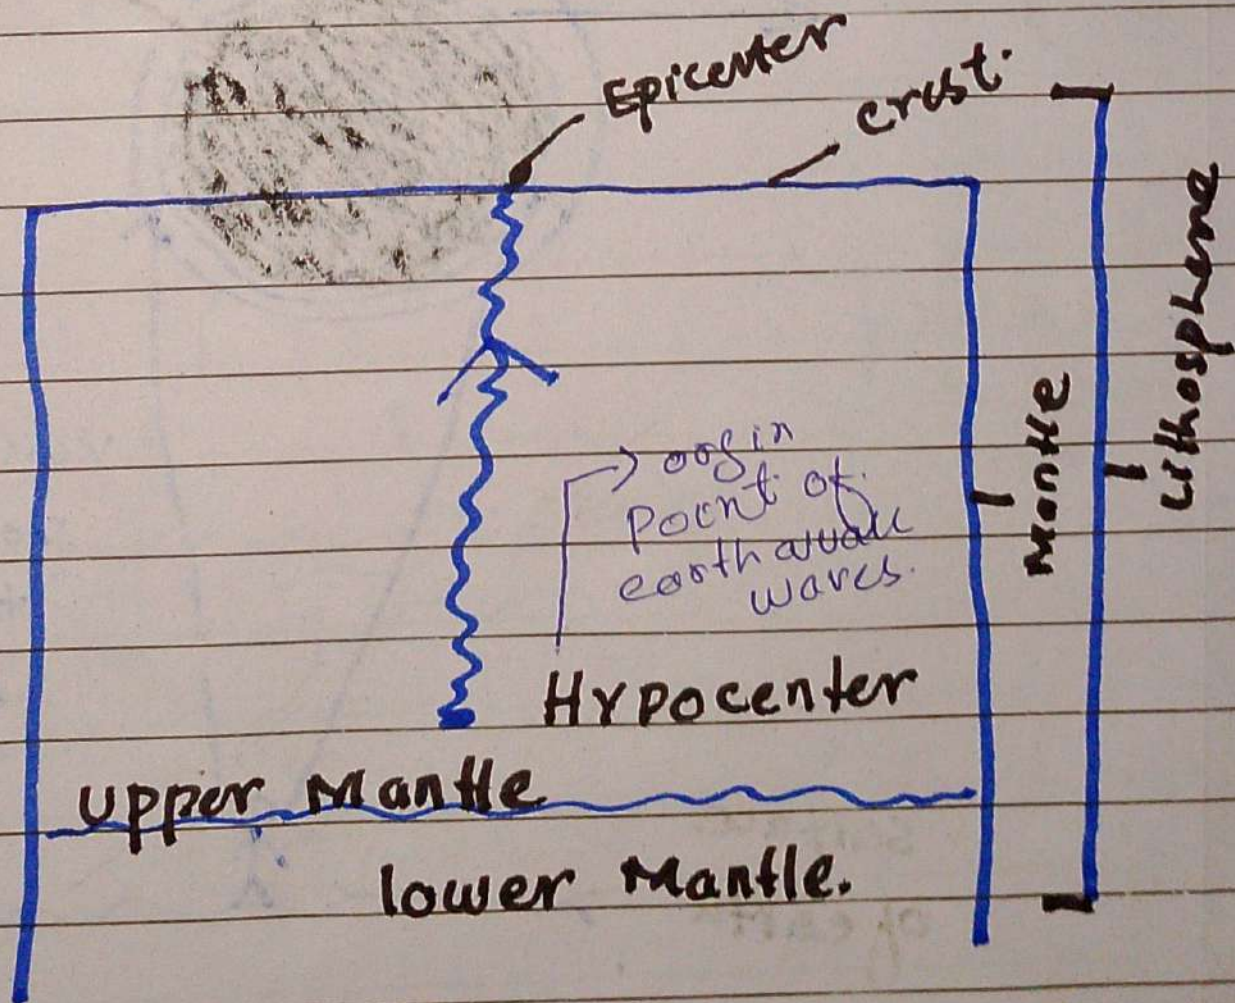 Epicenter
crust.
Lithosphene
Mantle
→ orgin
point of
earthquake
waves.
Hypocenter
upper Mantle
lower Mantle.